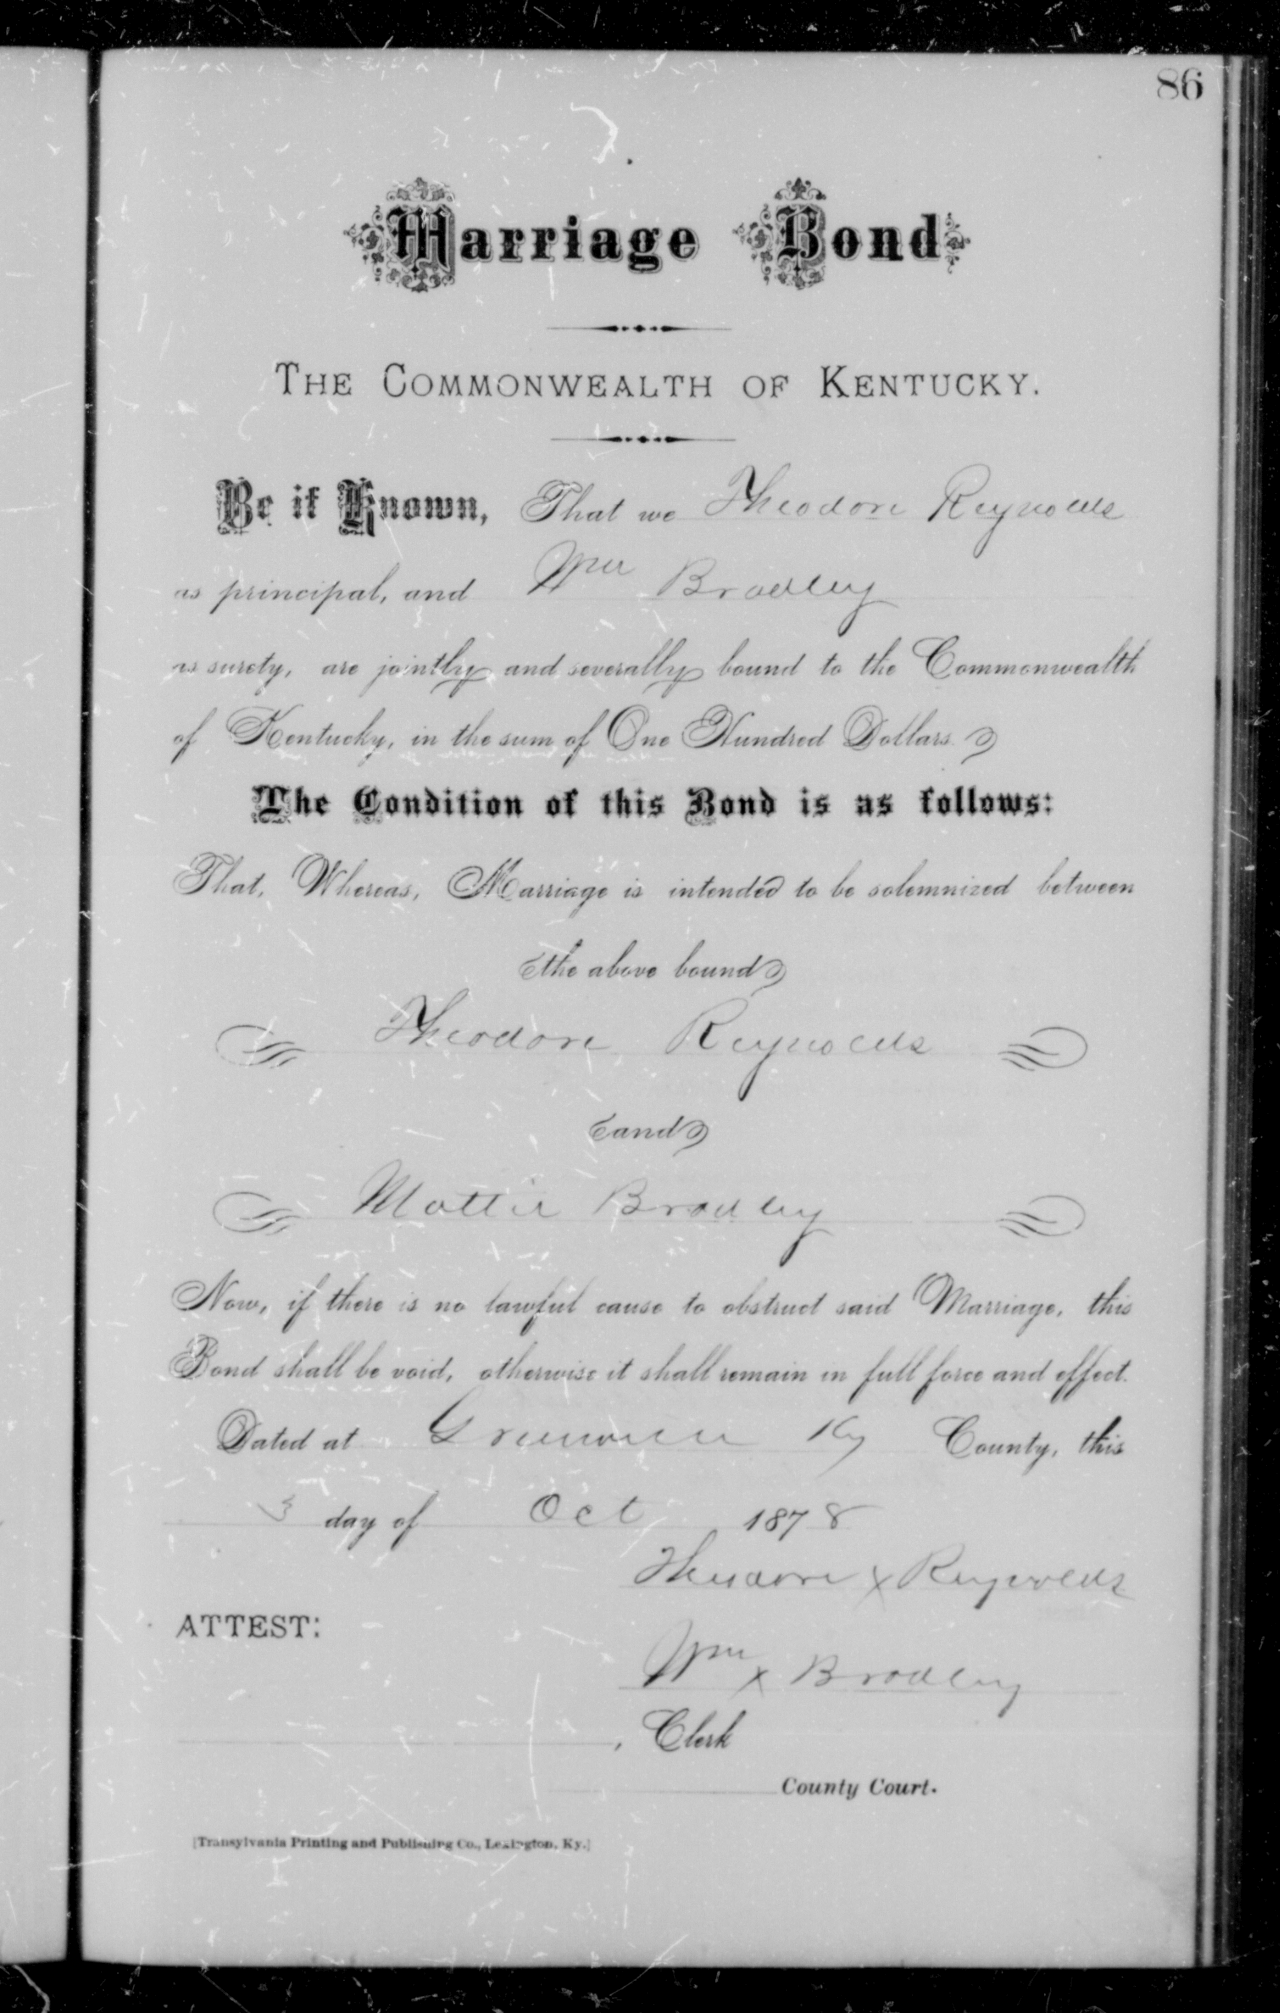 86
Marriage Bond
THE COMMONWEALTH OF KENTUCKY.
Be it Known, That we Theodore Reynolds
as principal, and Wm Bradley
as surety, are jointly and severally bound to the Commonwealth
of Kentucky, in the sum of One Hundred Dollars.
The Condition of this Bond is as follows:
That, Whereas, Marriage is intended to be solemnized between
the above bound
Theodore Reynolds
and
Mattie Bradley
Now, if there is no lawful cause to obstruct said Marriage, this
Bond shall be void, otherwise it shall remain in full force and effect.
Dated at Ky County, this
3 day of Oct 1878
Theodore x Reynolds
ATTEST:
Wm x Bradley
, Clerk
County Court.
[Transylvania Printing and Publishing Co., Lexington, Ky.]